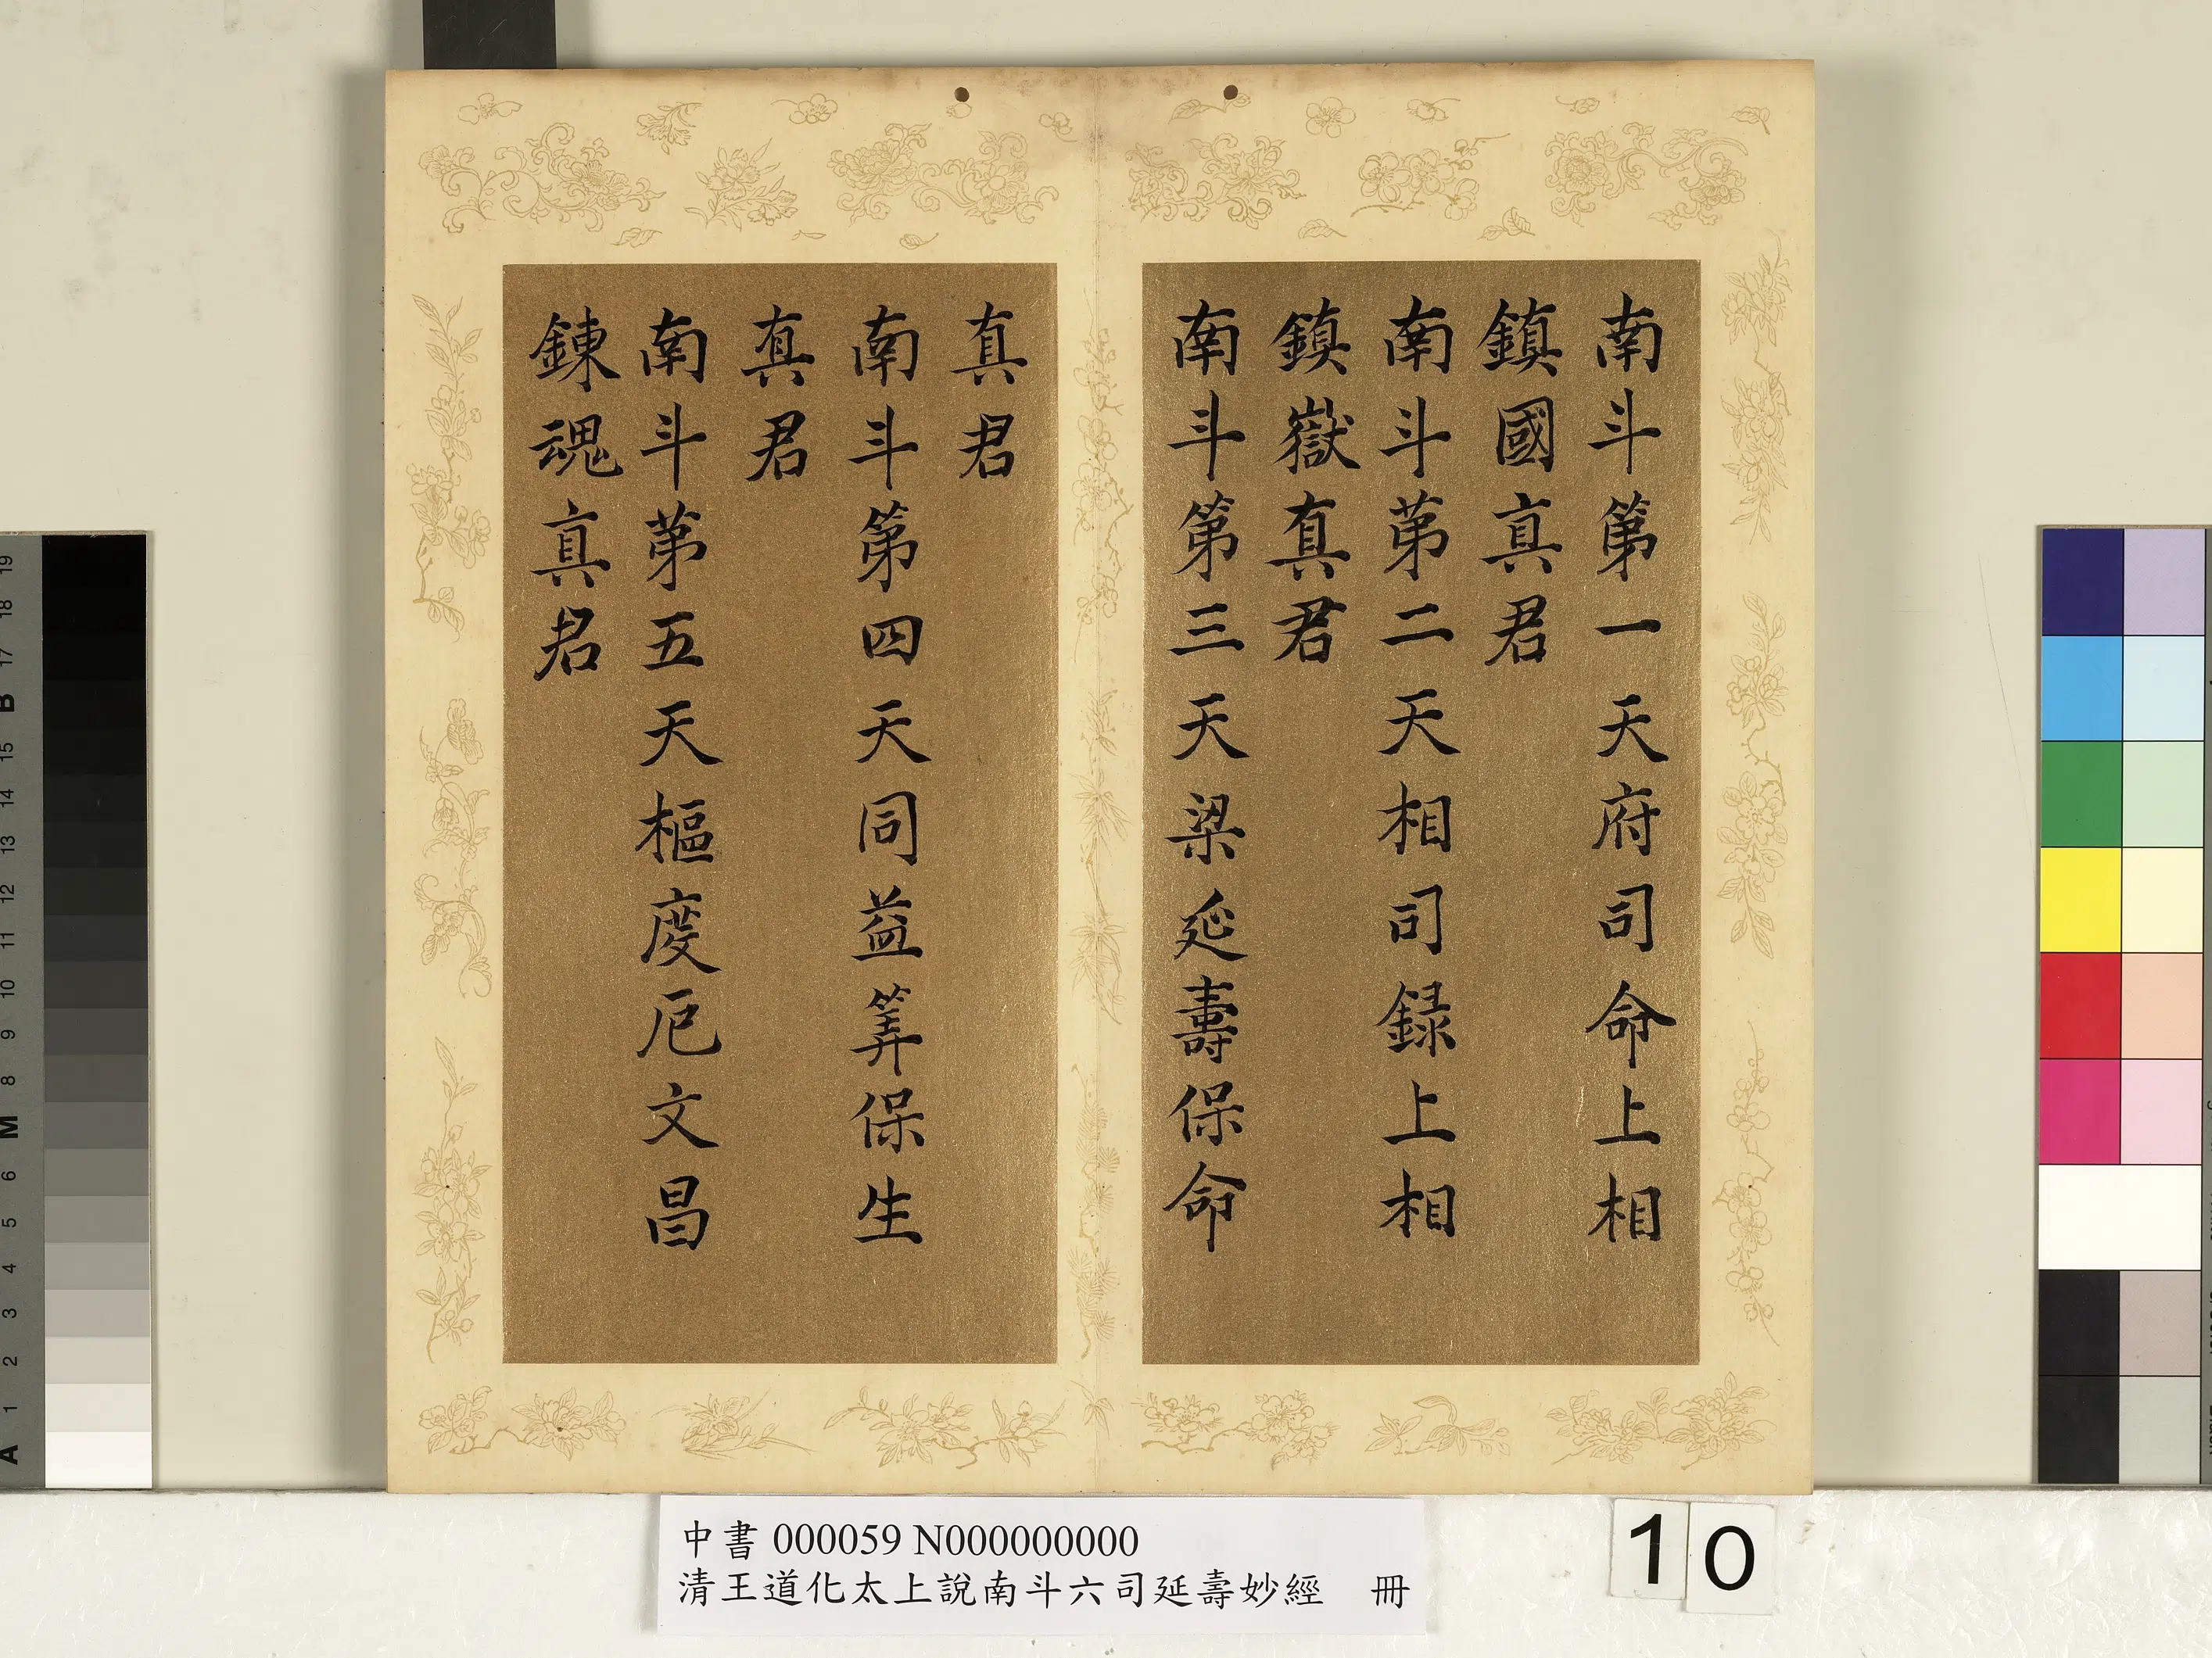 南斗第一天府司命上相
鎮國真君
南斗第二天相司録上相
鎮嶽真君
南斗第三天梁延壽保命
真君
南斗第四天同益筭保生
真君
南斗第五天樞度厄文昌
鍊魂真君
中書 000059 N000000000
清王道化太上說南斗六司延壽妙經 冊
10
19
18
17
B
15
14
13
12
11
10
9
8
M
6
5
4
3
2
1
A